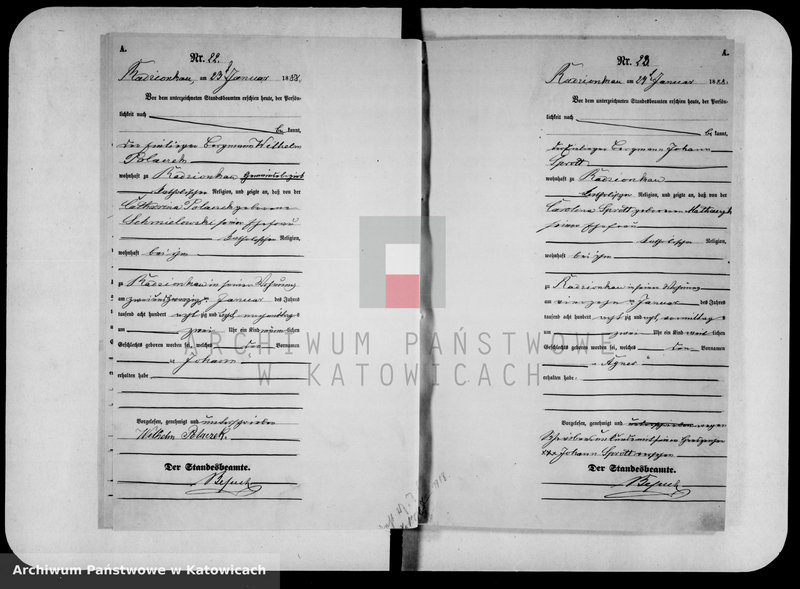 A.
Nr. 22.
Radzionkau, am 23t Januar 1888.
Vor dem unterzeichneten Standesbeamten erschien heute, der Persön-
lichkeit nach
be kannt,
der Bergmann Wilhelm
Polaczek
wohnhaft zu Radzionkau
katholischer Religion, und zeigte an, daß von der
Catharina Polaczek geborene
Schmielowski seiner Ehefrau
katholischer Religion,
wohnhaft bei ihm
zu Radzionkau in seiner Wohnung
am zwei und zwanzigsten Januar des Jahres
tausend acht hundert acht zig und acht nachmittags
um zwei Uhr ein Kind männlichen
Geschlechts geboren worden sei, welches den Vornamen
Johann
erhalten habe
Vorgelesen, genehmigt und unterschrieben
Wilhelm Polaczek.
Der Standesbeamte.
A.
Nr. 23.
Radzionkau am 24t Januar 1888.
Vor dem unterzeichneten Standesbeamten erschien heute, der Persön-
lichkeit nach
be kannt,
Bergmann Johann
Sprott
wohnhaft zu Radzionkau
katholischer Religion, und zeigte an, daß von der
Carolina Sprott geborenen
seiner Ehefrau
katholischer Religion,
wohnhaft bei ihm
zu Radzionkau in seiner Wohnung
am Januar des Jahres
tausend acht hundert acht zig und acht vormittags
um zwei Uhr ein Kind weiblichen
Geschlechts geboren worden sei, welches den Vornamen
Agnes
erhalten habe
Vorgelesen, genehmigt und unterschrieben wegen
xxx Johann Sprott
Der Standesbeamte.
ARCHIWUM PAŃSTWOWE
W KATOWICACH
Archiwum Państwowe w Katowicach